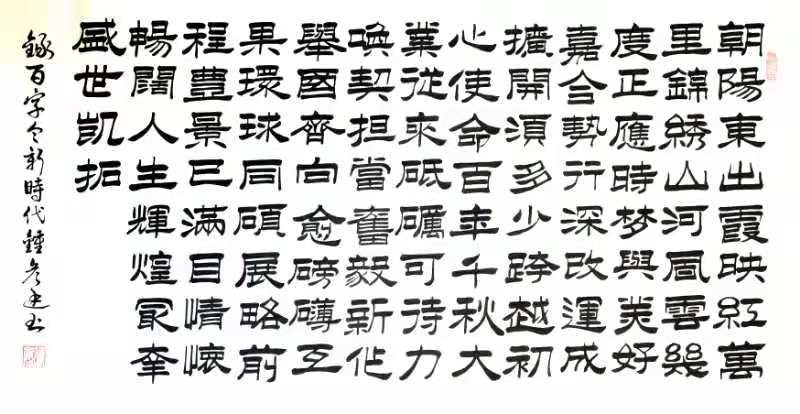 朝陽東出霞映紅萬
里錦綉山河風雲幾
度正應時梦與美好
嘉合勢行深改運成
擴開須多少跨越初
心使命百年千秋大
業從來砥礪可待力
喚契担當奮毅新作
舉國齊向愈磅礴互
果環球同碩展略前
程豊景已滿目情懷
暢闊人生輝煌最牽
盛世凯拓
錄百字令新時代鍾彦书